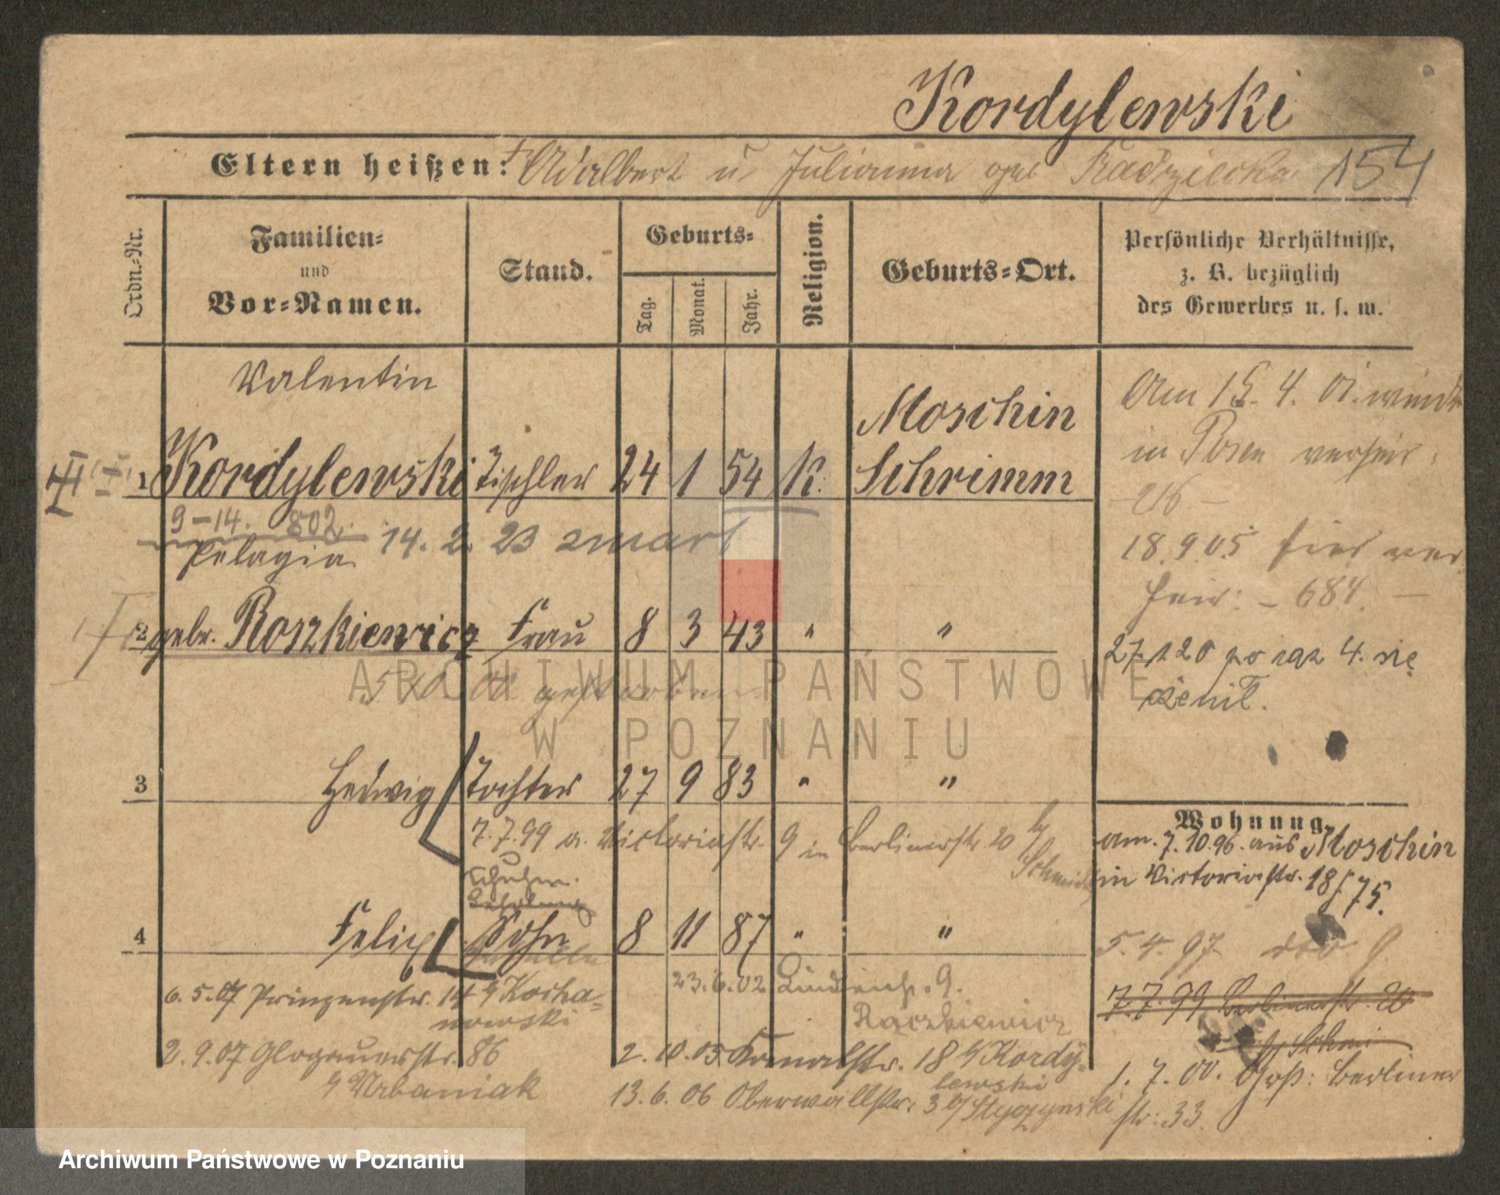 Kordylewski
Eltern heißen: Adalbert u Julianna geb Radziecka 154
Ordn.-Nr.
Familien-
und
Vor-Namen.
Stand.
Geburts-
Tag.
Monat.
Jahr.
Religion.
Geburts-Ort.
Persönliche Verhältnisse,
z. B. bezüglich
des Gewerbes u. s. w.
Valentin
1 Kordylewski Tischler 24 1 54 K. Moschin
Schrimm
9-14. 802.
Pelagia 14. 2. 23 zmarł
2 gebr. Roszkiewicz Frau 8 3 43 " "
gestorben
3 Hedwig Tochter 27 9 83 " "
7.7.99 a. Victoriastr. 9 in Berlinerstr 20 b/
Schmidt
Schuhm.
Lehrling
4 Felix Sohn 8 11 87 " "
Am 15. 4. 01. wurde
in Posen
18.9.05 hier ver
heir: - 684. -
27.1.20 po raz 4. się
ożenił.
Wohnung.
am. 7.10.96. aus Moschin
in Victoriastr. 18/75.
5.4.97 dto 9
7.7.99 Berlinerstr. 20
b/ Schmi
1.7.00. Groß: Berliner
str: 33.
6.5.07 Prinzenstr. 14 b/ Kocha-
nowski
23.6.02 Lindenstr. 9.
Raczkiewicz
2.9.07 Glogauerstr. 86
b/ Urbaniak
2.10.05 Kanalstr. 18 b/ Kordy-
lewski
13.6.06 Oberwallstr. 3 b/ Styczynski
ARCHIWUM PAŃSTWOWE
W POZNANIU
Archiwum Państwowe w Poznaniu